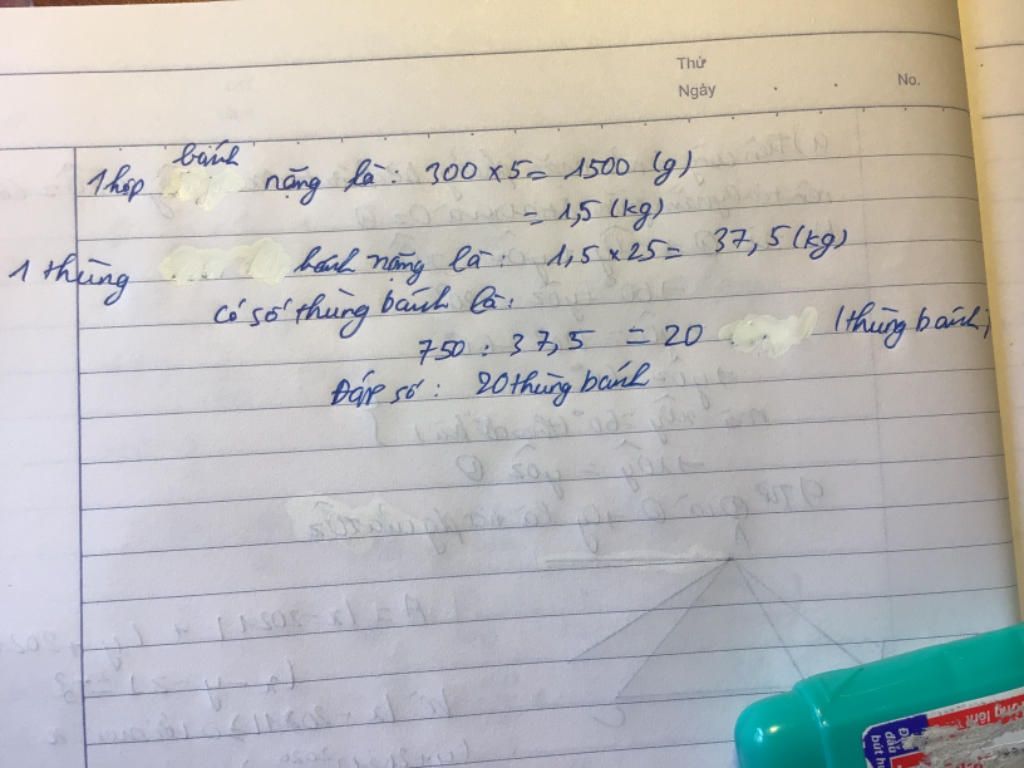 Thứ
Ngày
No.
1 hộp bánh nặng là: 300 x 5 = 1500 (g)
= 1,5 (kg)
1 thùng bánh nặng là: 1,5 x 25 = 37,5 (kg)
Có số thùng bánh là:
750 : 37,5 = 20 (thùng bánh)
Đáp số: 20 thùng bánh